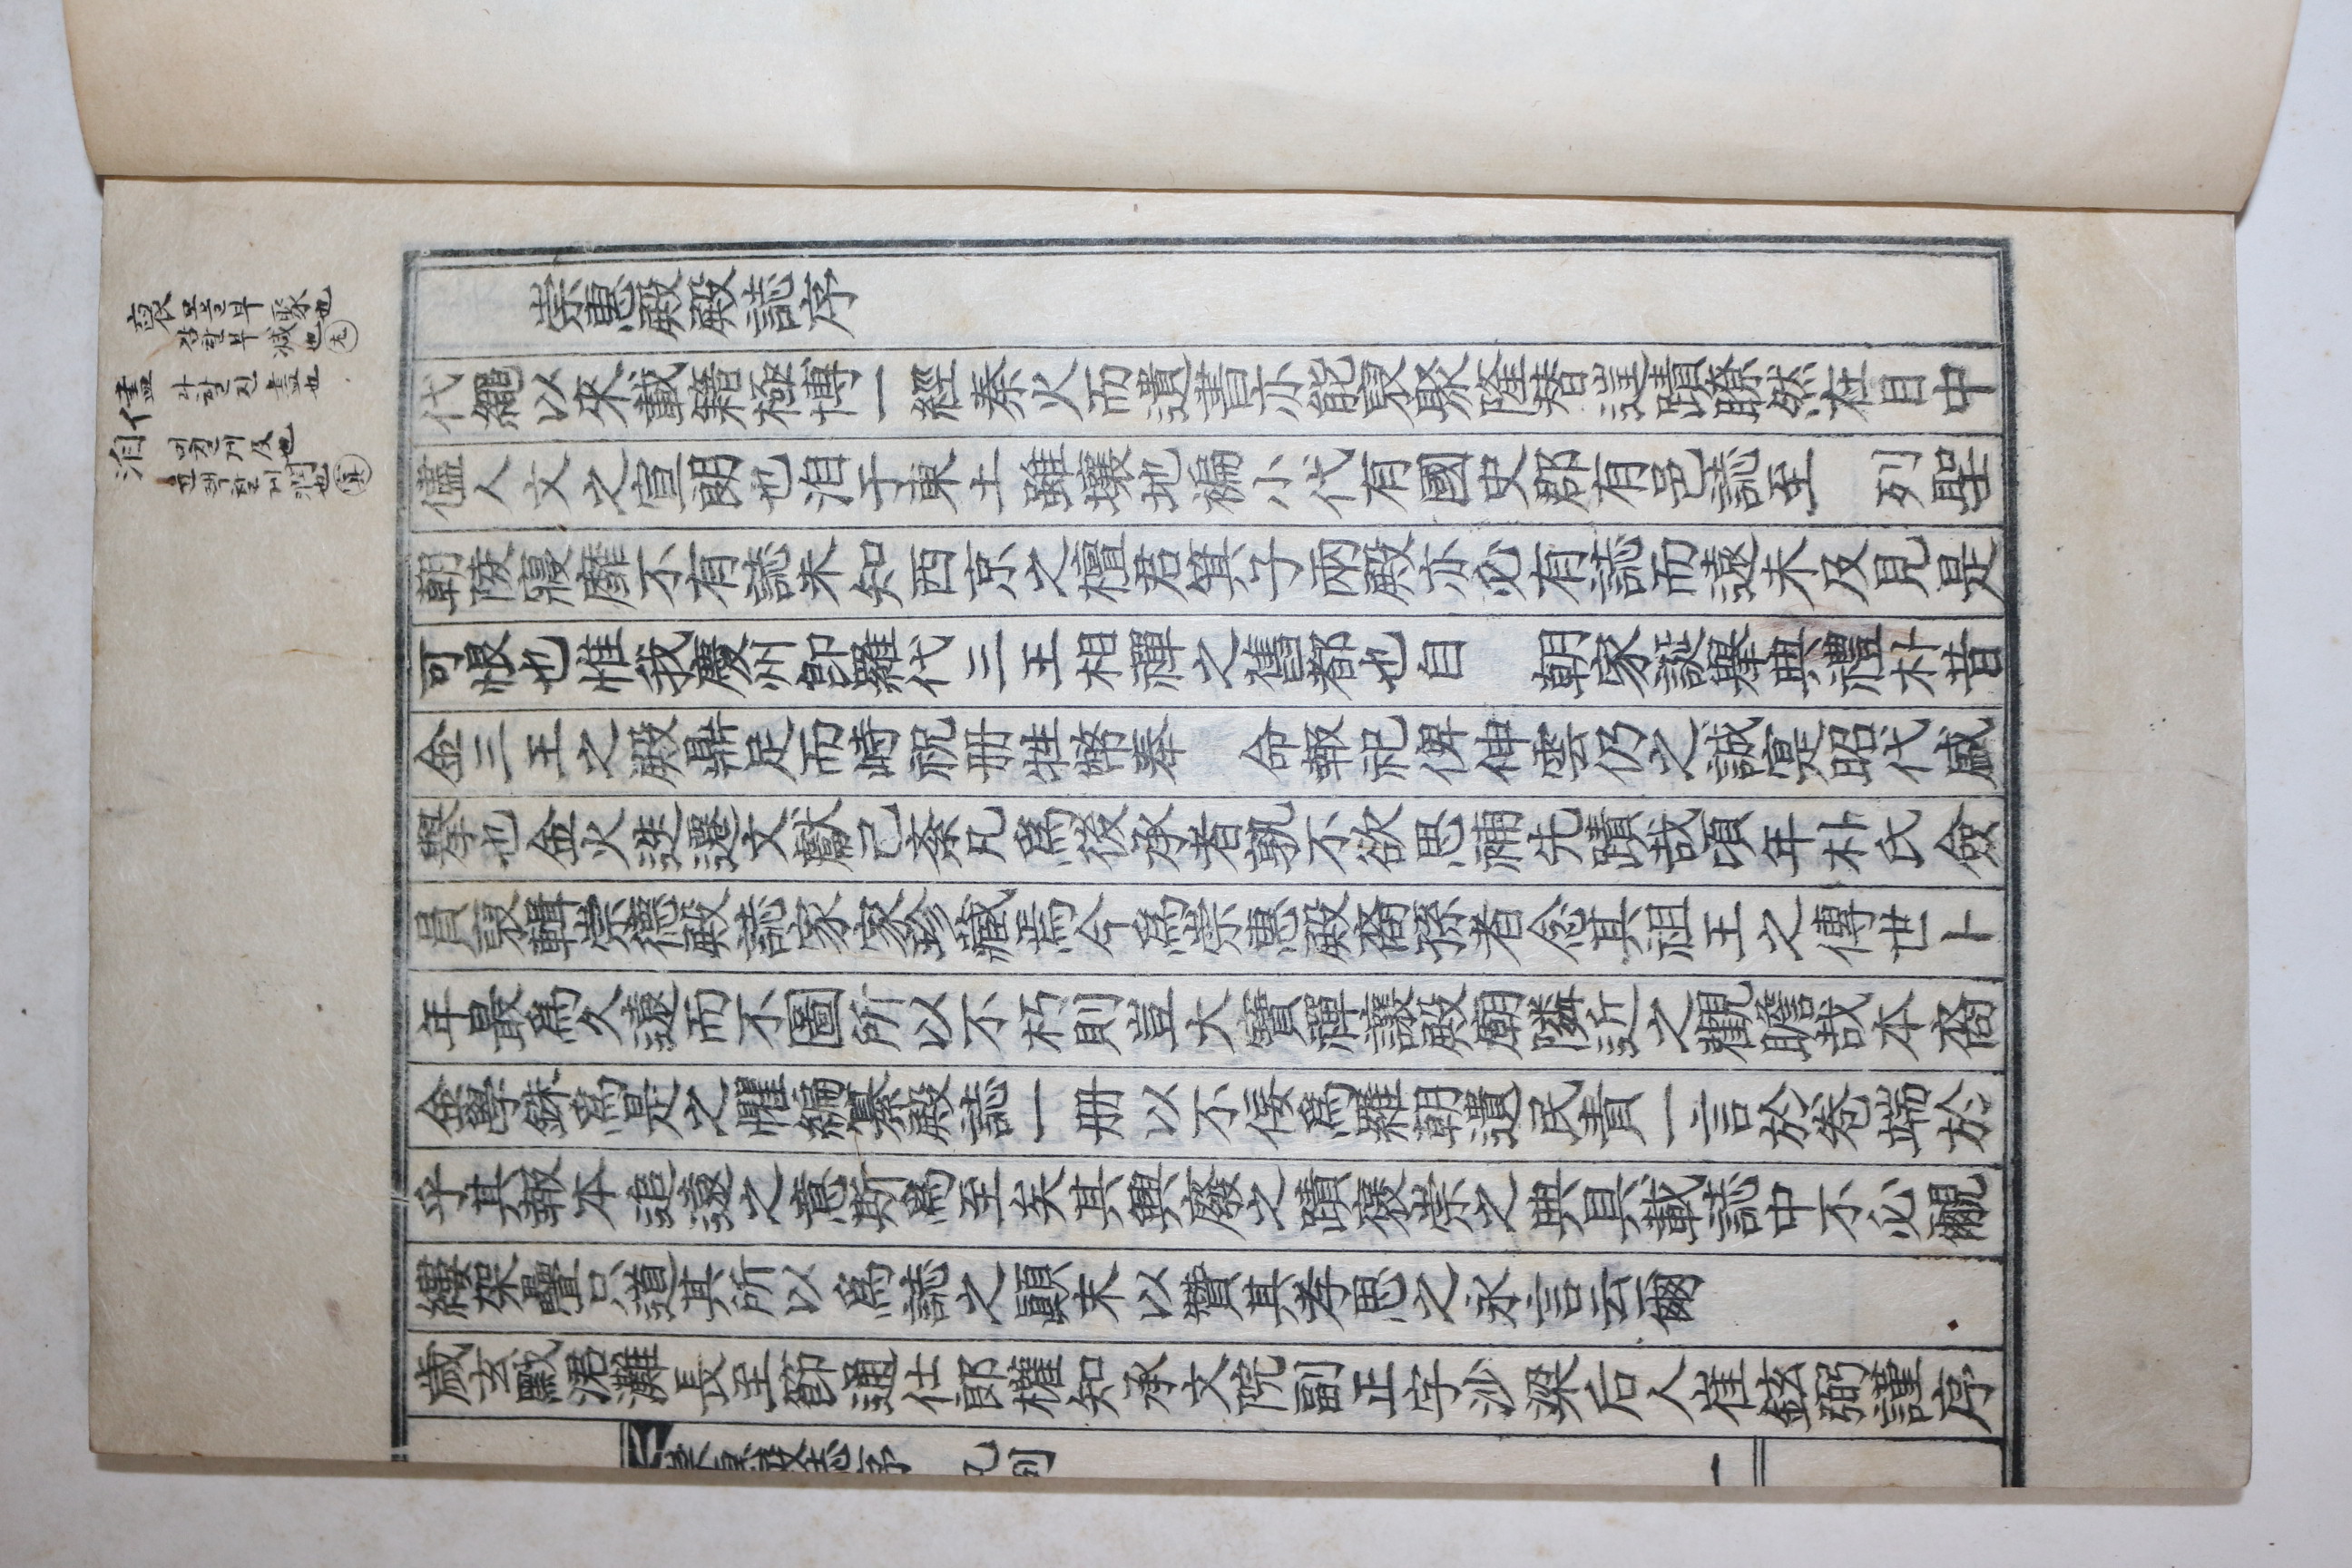 裒 모을부 聚也
감할부 减也
儘 다할진 盡也
洎 미칠게 及也
윤택할게 潤也
崇惠殿殿誌序
代繩以來載籍極博一經秦火而遺書亦能裒聚隆替遑蹟瞭然在目中
儘人文之宣朗也洎于東土雖壤地褊小代有國史郡有邑誌至 列聖
朝陵寢靡不有誌未知西京之檀君箕子兩殿亦必有誌而遠未及見是
可恨也惟我慶州卽羅代三王相禪之舊都也自 朝家誕擧典禮朴昔
金三王之殿鼎足而峙祝册牲幣奉 命報祀俾伸雲仍之誠寔昭代盛
擧也金火迭遷文獻己紊凡爲後承者孰不欲思補先蹟哉頃年朴氏僉
員裒輯崇德殿誌家家珍藏焉今爲崇惠殿裔孫者念其祖王之傳世卜
年最爲久遠而不圖所以不朽則豈大寶禪讓殿廟隣近之觀瞻哉本裔
金學銖爲是之懼編纂殿誌一册以不佞爲羅朝遺民責一言於卷端於
乎其報本追遠之意斯爲至矣其興廢之蹟褒崇之典具載誌中不必覼
縷架疊只道其所以爲誌之顚末以贊其孝思之永言云爾
歲玄黓涒灘長至節通仕郎權知承文院副正字沙梁后人崔鉉弼謹序
崇惠殿誌序 凡例 一